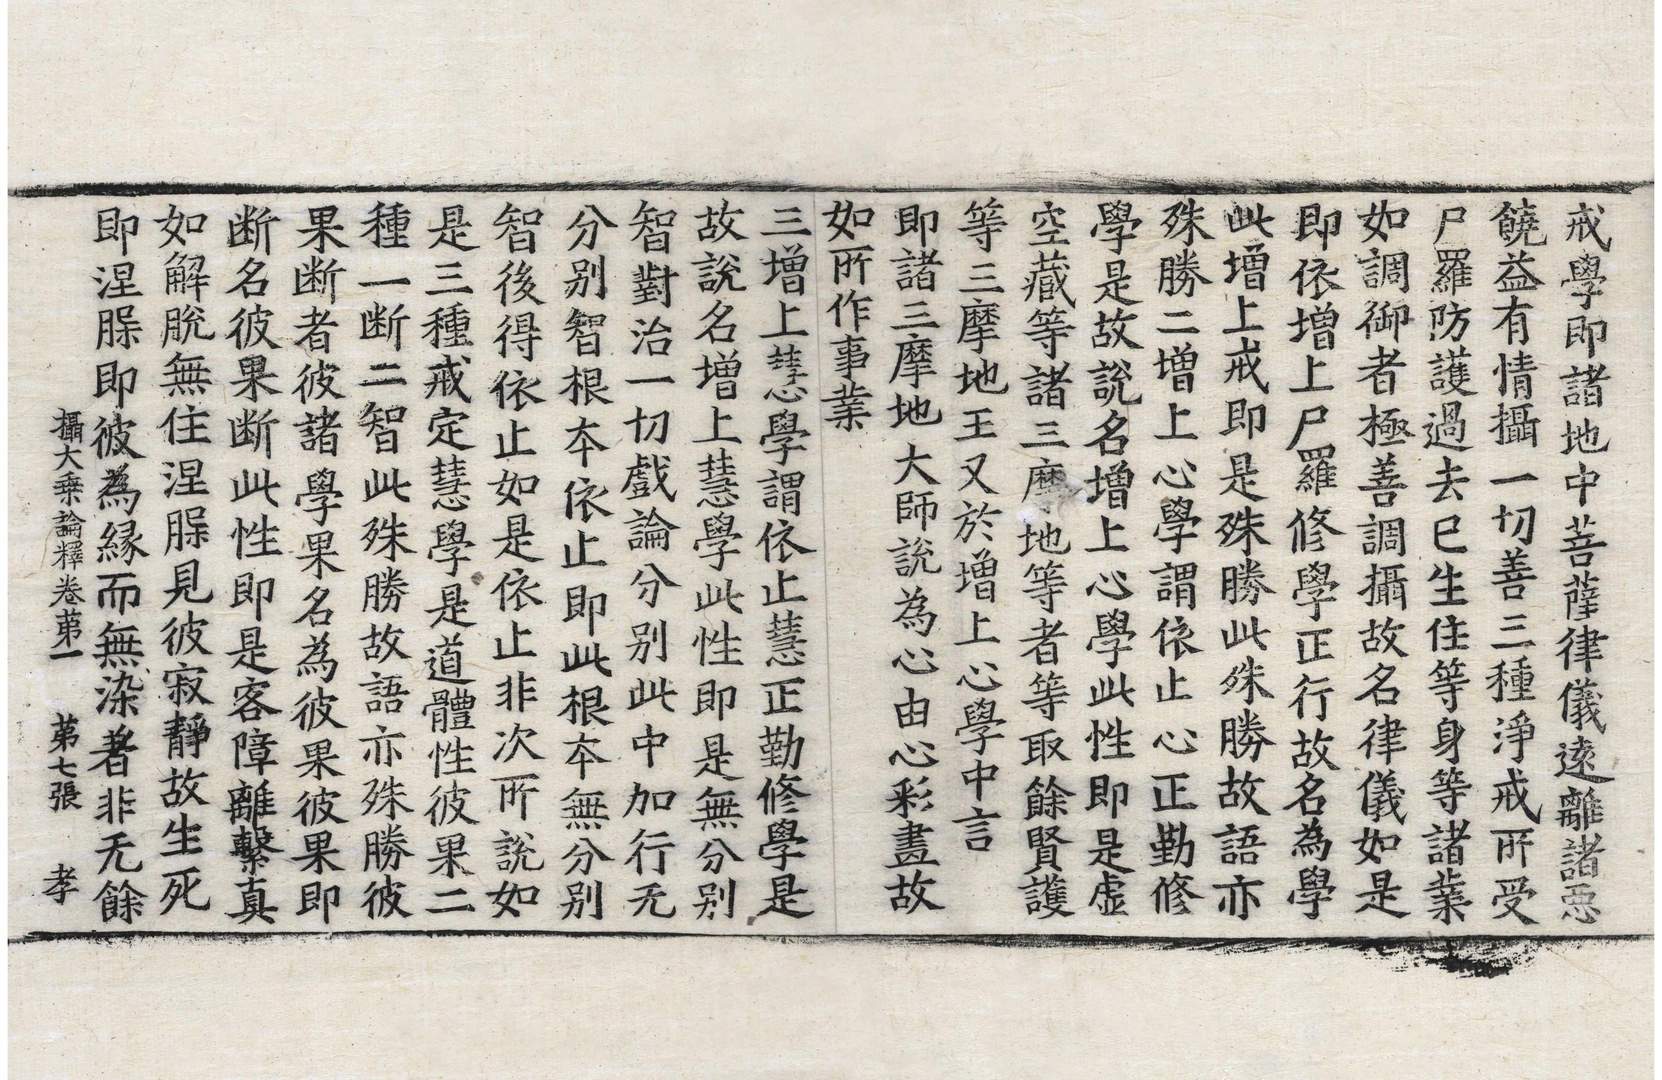 戒學即諸地中菩薩律儀遠離諸惡
饒益有情攝一切善三種淨戒所受
尸羅防護過去已生住等身等諸業
如調御者極善調攝故名律儀如是
即依增上尸羅修學正行故名為學
此增上戒即是殊勝此殊勝故語亦
殊勝二增上心學謂依止心正勤修
學是故說名增上心學此性即是虛
空藏等諸三摩地等者等取餘賢護
等三摩地王又於增上心學中言
即諸三摩地大師說為心由心彩畫故
如所作事業
三增上慧學謂依止慧正勤修學是
故說名增上慧學此性即是無分别
智對治一切戲論分别此中加行无
分别智根本依止即此根本無分别
智後得依止如是依止非次所說如
是三種戒定慧學是道體性彼果二
種一断二智此殊勝故語亦殊勝彼
果断者彼諸學果名為彼果彼果即
断名彼果断此性即是客障離繫真
如解脫無住涅槃見彼寂靜故生死
即涅槃即彼為緣而無染者非无餘
攝大乗論釋卷苐一 苐七張 孝